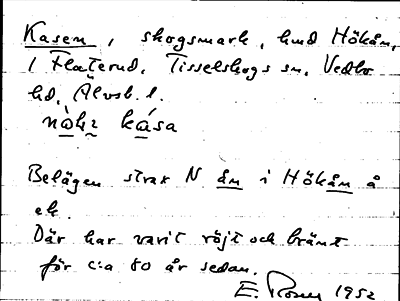 Kasen, skogsmark, hmd Hökån,
1 Flaterud, Tisselskogs sn, Vedbo
hd, Älvsb. l.
nòkz kása
Belägen strax N ån i Hökån å
ek.
Där har varit röjt och bränt
för c:a 80 år sedan.
E. 1952